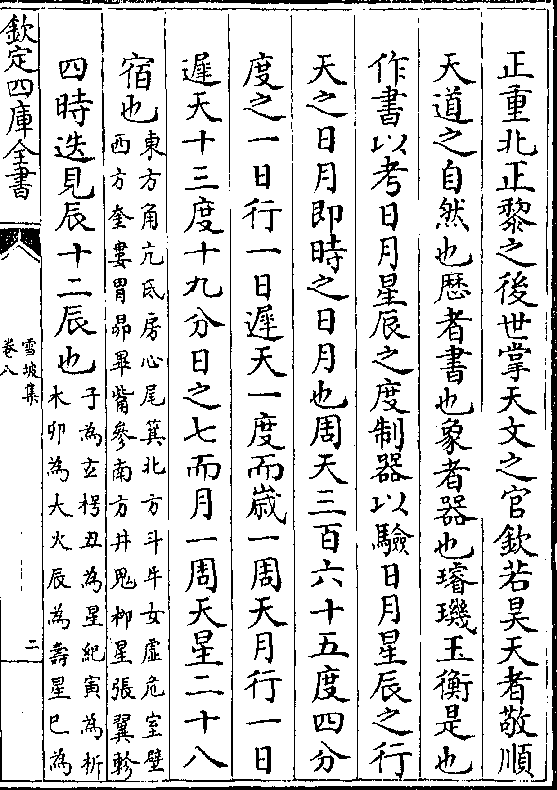 正重北正黎之後世掌天文之官欽若昊天者敬順
天道之自然也厯者書也象者器也璿璣玉衡是也
作書以考日月星辰之度制器以驗日月星辰之行
天之日月即時之日月也周天三百六十五度四分
度之一日行一日遲天一度而歲一周天月行一日
遲天十三度十九分日之七而月一周天星二十八
宿也東方角亢氐房心尾箕北方斗牛女虛危室壁
西方奎婁胃昴畢觜參南方井鬼柳星張翼軫
四時迭見辰十二辰也子為玄枵丑為星紀寅為析
木卯為大火辰為壽星巳為
欽定四庫全書
雪坡集
卷八
二